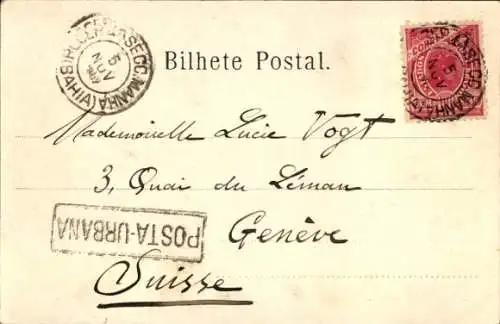 Bilhete Postal.
5
NOV
(BAHIA)
Mademoiselle Lucie Vogt
3, Quai du Léman
Genève
Suisse
POSTA-URBANA